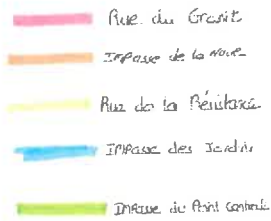 Rue du Granit
Impasse de la Noue
Rue de la Résistance
Impasse des Jardin
Impasse du Point Central